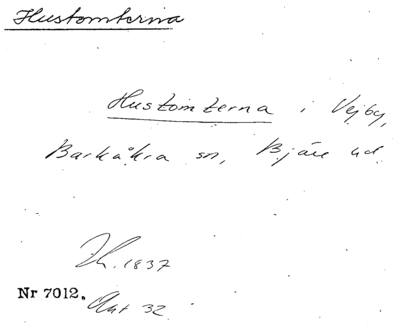 Hustomterna
Hustomterna i Vejby,
Barkåkra sn, Bjäre hd
Th. 1837
Nr 7012. Akt 32